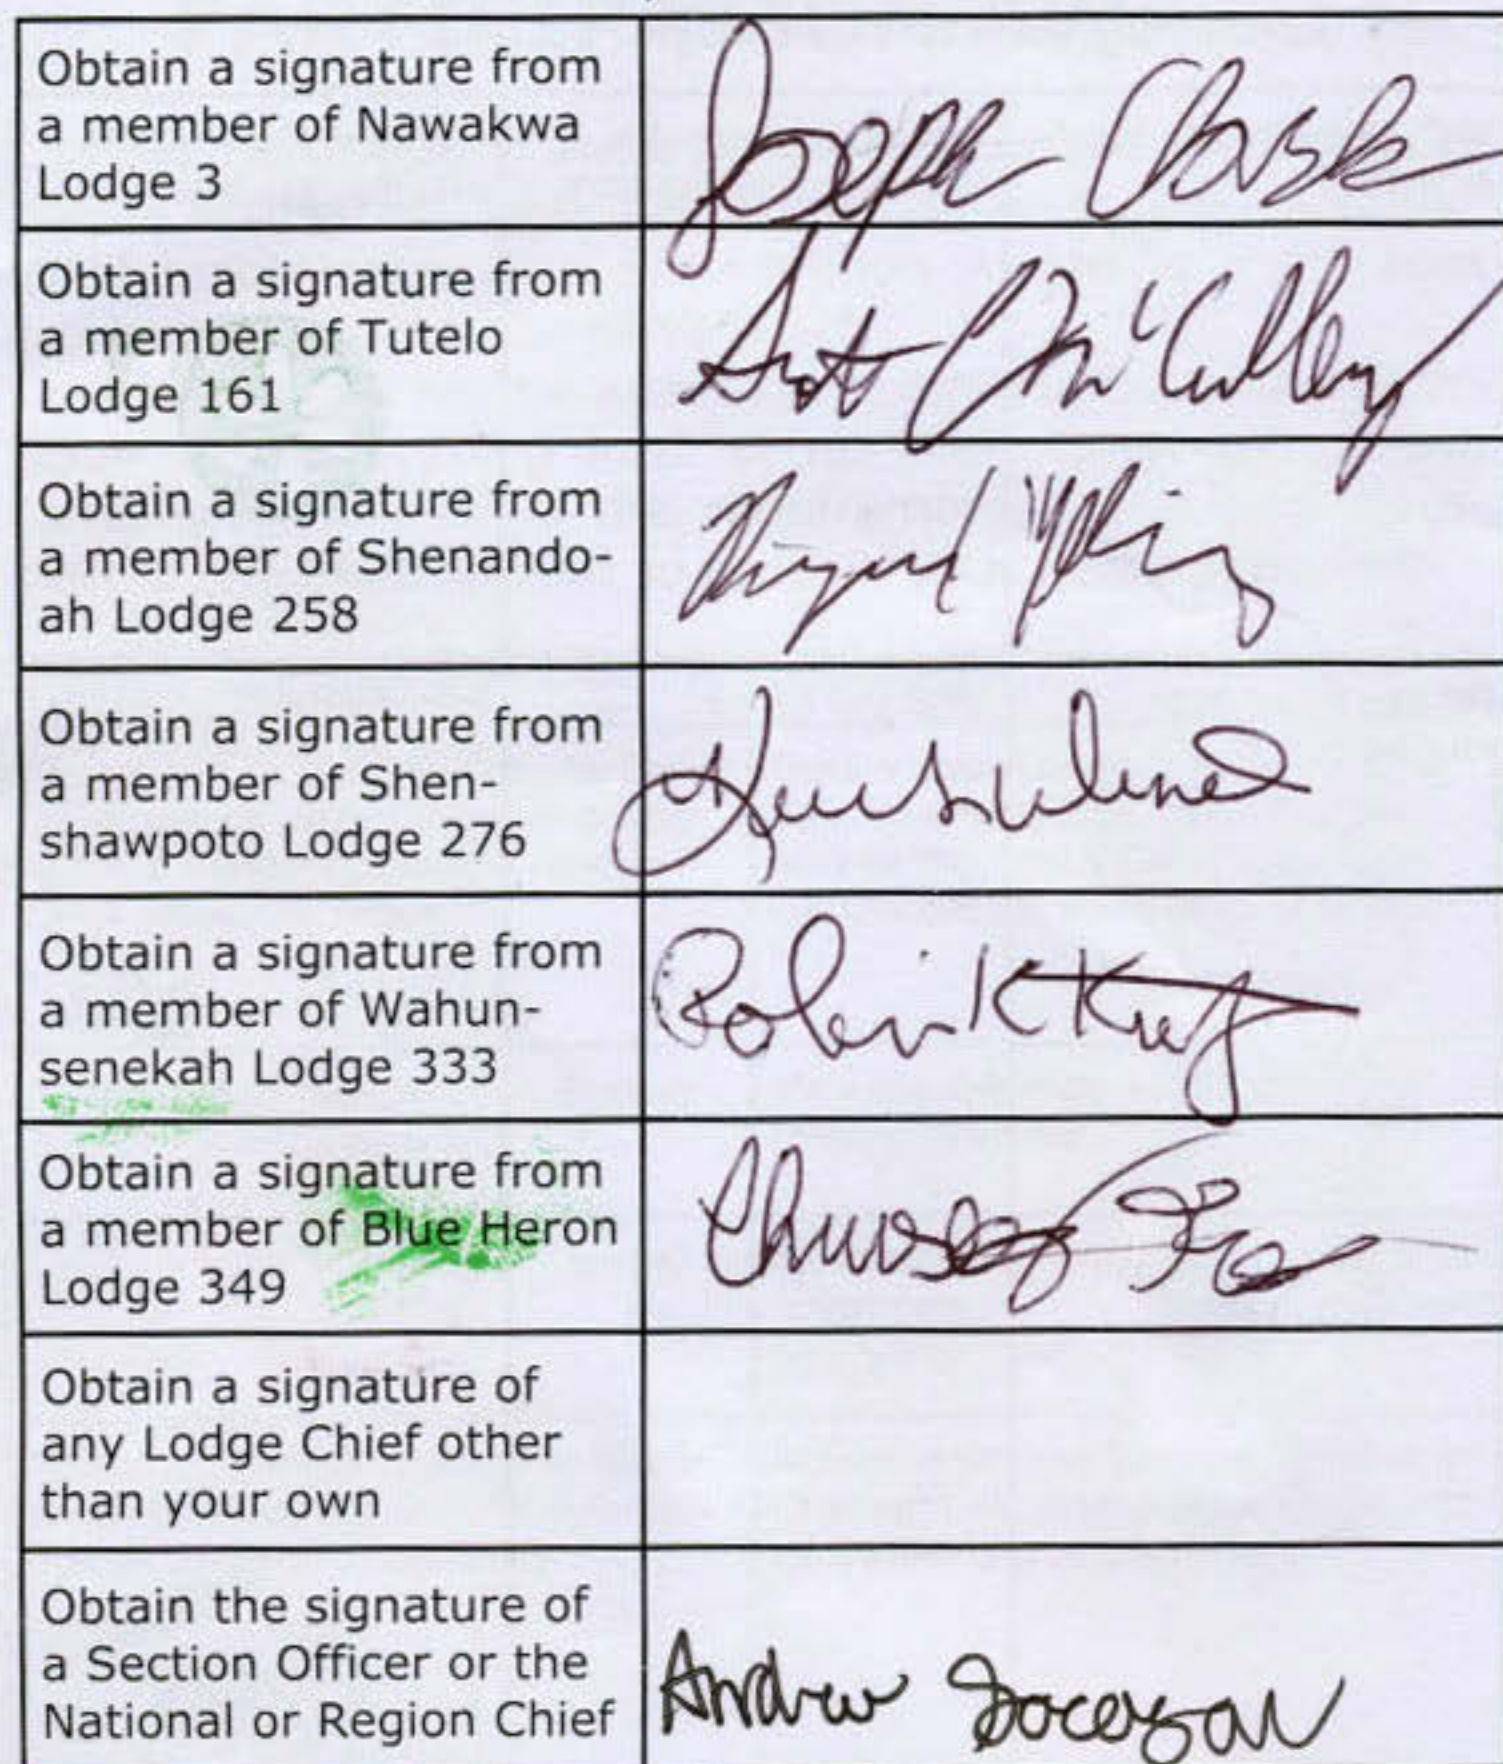 Obtain a signature from
a member of Nawakwa
Lodge 3
Joseph
Obtain a signature from
a member of Tutelo
Lodge 161
McCulley
Obtain a signature from
a member of Shenando-
ah Lodge 258
Obtain a signature from
a member of Shen-
shawpoto Lodge 276
Obtain a signature from
a member of Wahun-
senekah Lodge 333
Robin K
Obtain a signature from
a member of Blue Heron
Lodge 349
Obtain a signature of
any Lodge Chief other
than your own
Obtain the signature of
a Section Officer or the
National or Region Chief
Andrew